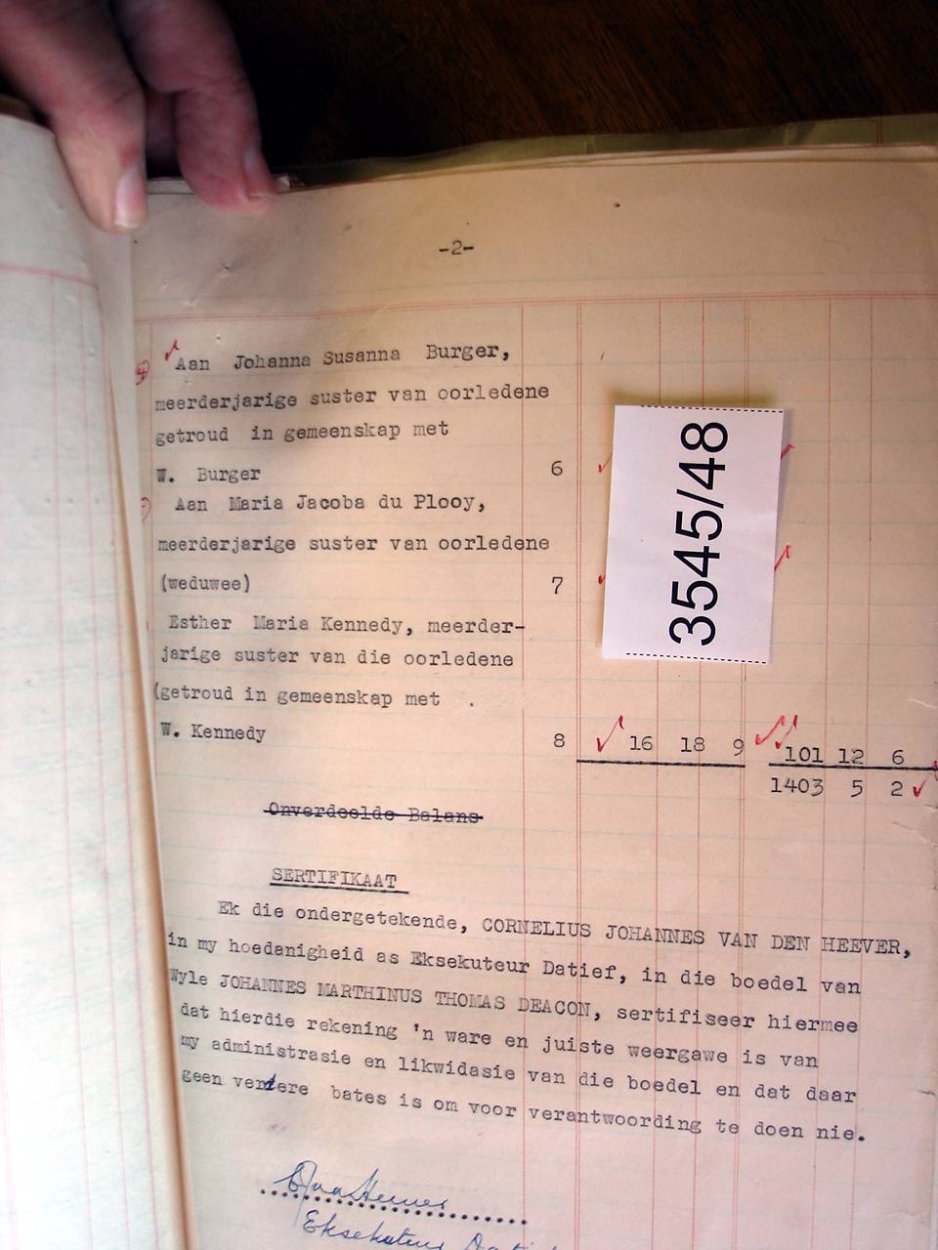 -2-
Aan Johanna Susanna Burger,
meerderjarige suster van oorledene
getroud in gemeenskap met
W. Burger 6
Aan Maria Jacoba du Plooy,
meerderjarige suster van oorledene
(weduwee) 7
Esther Maria Kennedy, meerder-
jarige suster van die oorledene
(getroud in gemeenskap met
W. Kennedy 8 16 18 9 101 12 6
1403 5 2
3545/48
Onverdeelde Balans
SERTIFIKAAT
Ek die ondergetekende, CORNELIUS JOHANNES VAN DEN HEEVER,
in my hoedanigheid as Eksekuteur Datief, in die boedel van
Wyle JOHANNES MARTHINUS THOMAS DEACON, sertifiseer hiermee
dat hierdie rekening 'n ware en juiste weergawe is van
my administrasie en likwidasie van die boedel en dat daar
geen verdere bates is om voor verantwoording te doen nie.
Eksekuteur Datief